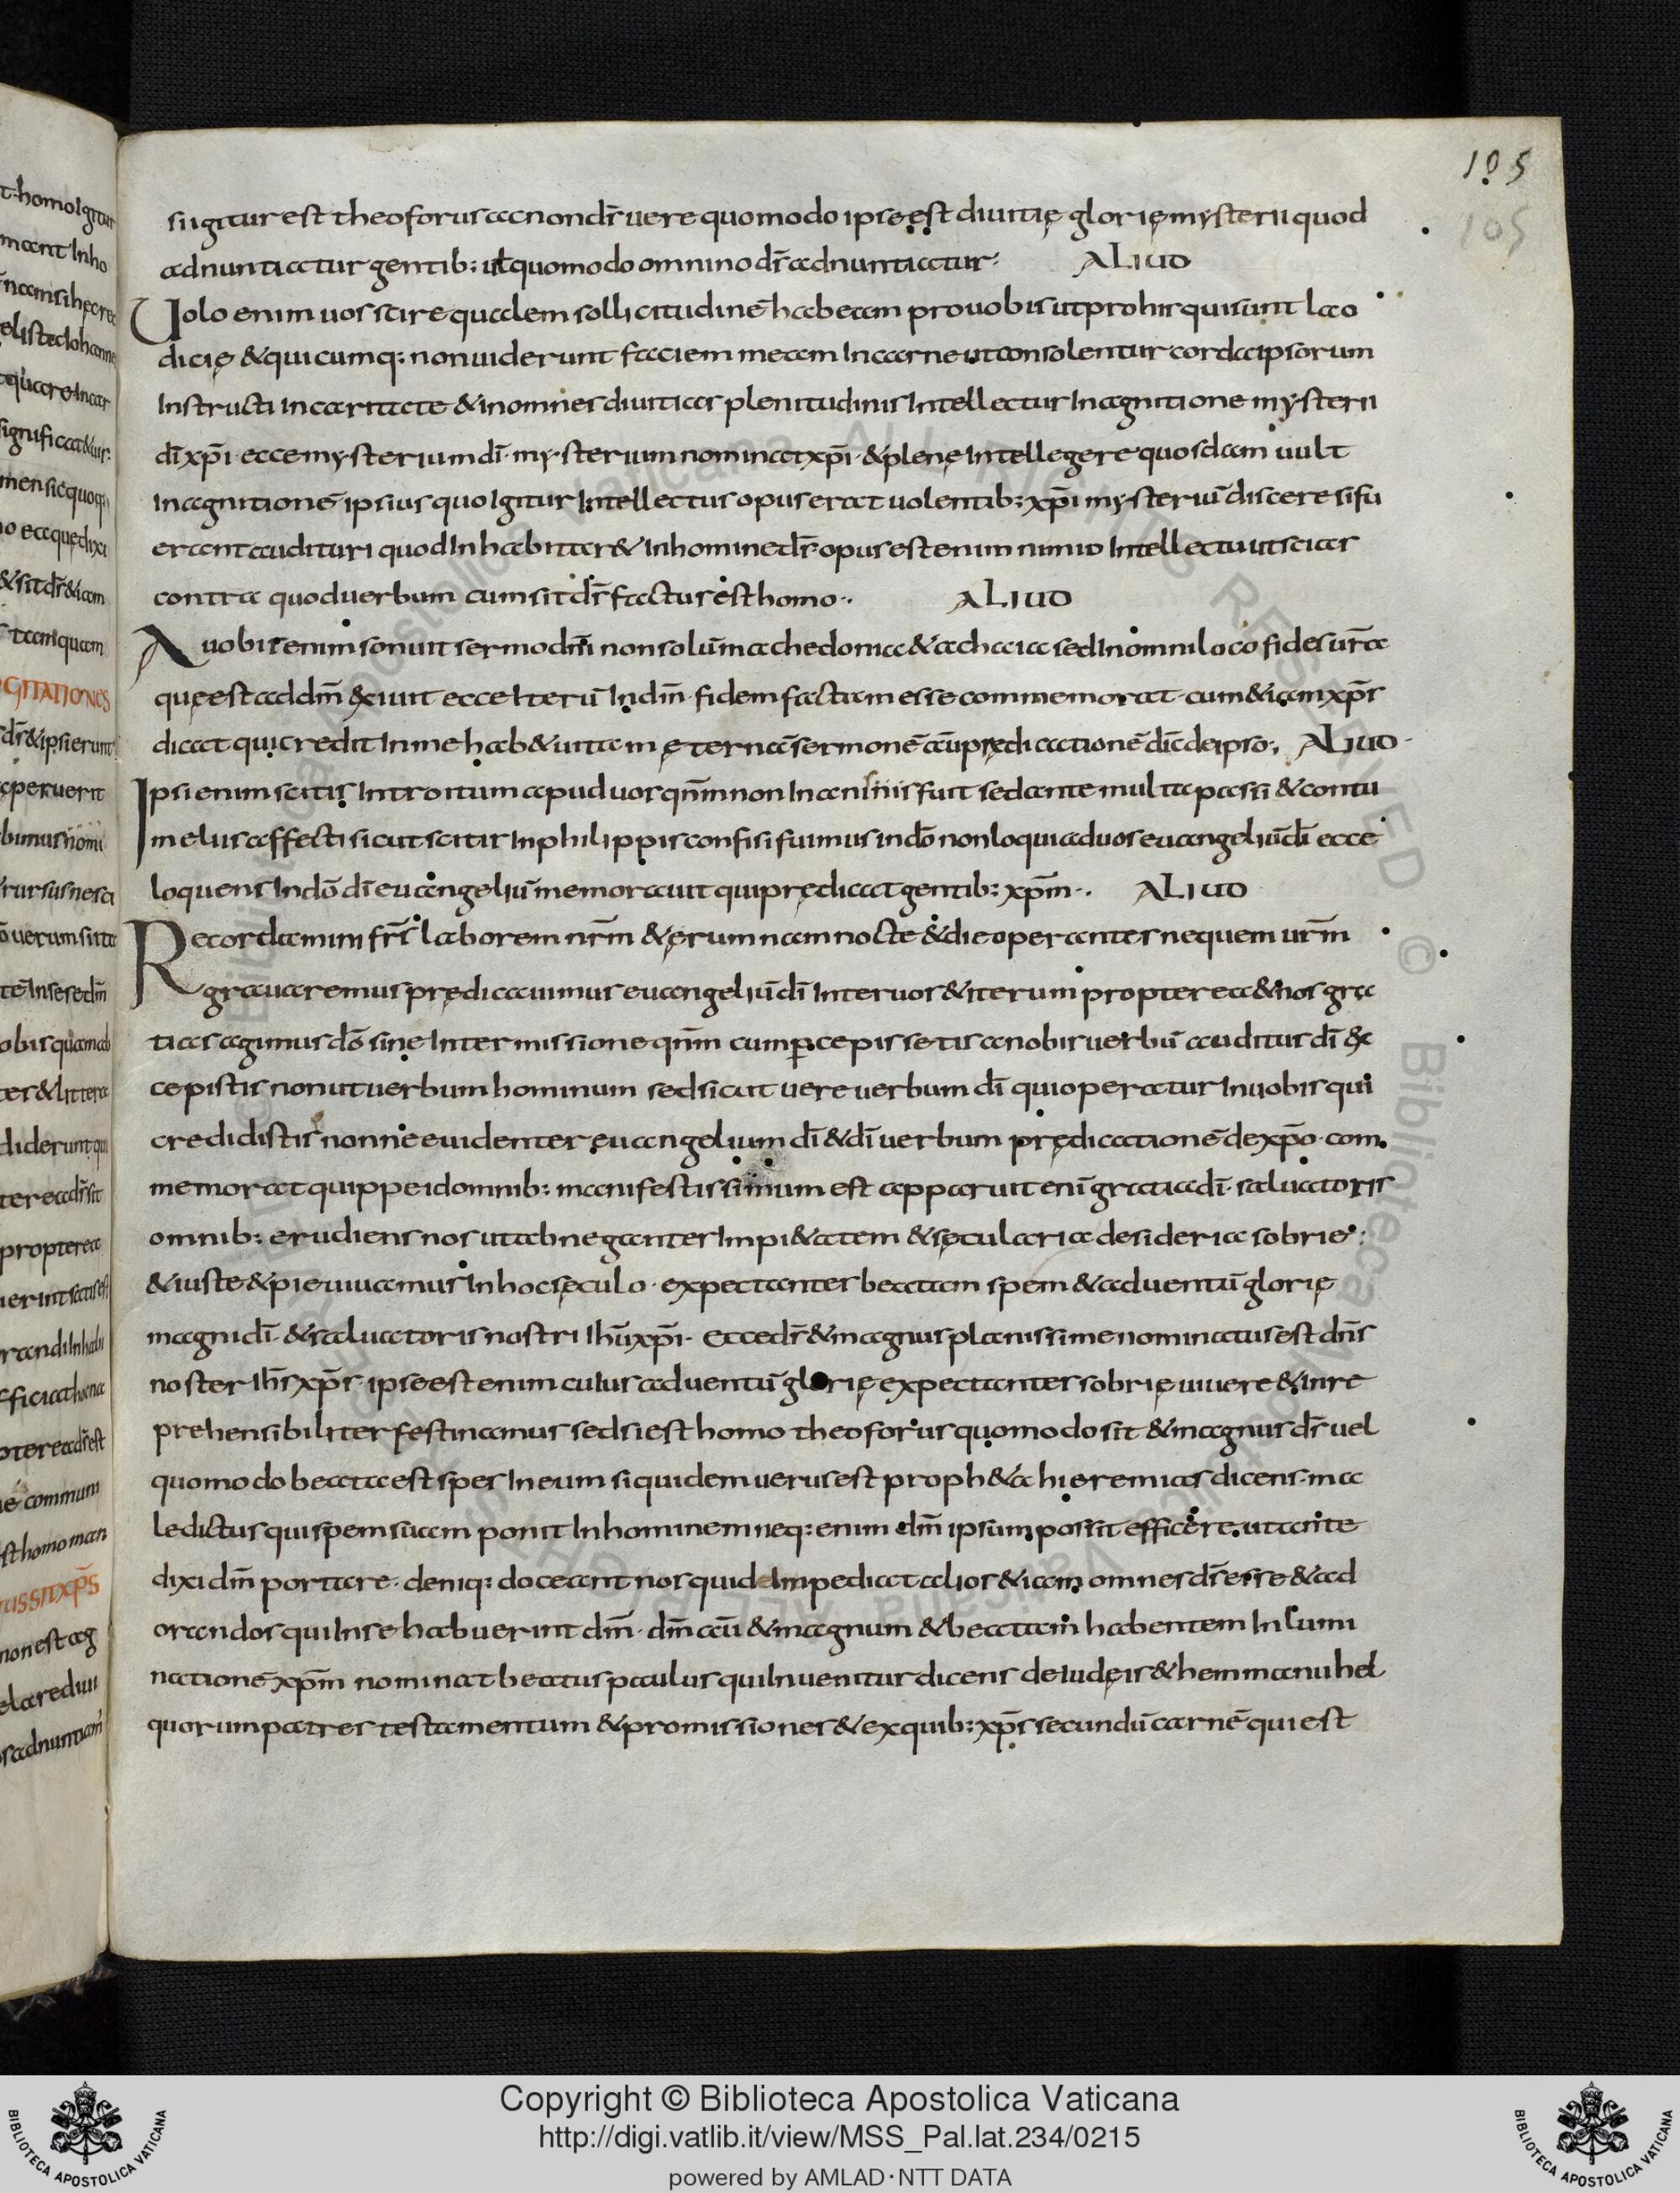 105
105
si igitur est theoforus ac non dr̄ uere quomodo ipse est diuitię glorię mysterii quod
adnuntiatur gentib: uł quomodo omnino dr̄ adnuntiatur· ALIUD
Uolo enim uos scire qualem sollicitudinē habeam pro uobis ut pro his qui sunt lao
dicię & quicumq: non uiderunt faciem meam In carne ut consolentur corda ipsorum
Instructi In caritate & in omnes diuitias plenitudinis Intellectus In agnitione mysterii
dī xp̄i· ecce mysterium dī· mysterium nominat xp̄i· & plenę Intellegere quosdam uult
In agnitionē ipsius quo Igitur Intellectus opus erat uolentib: xp̄i mysteriū discere si fu
erant audituri quod Inhabitar& In homine ds̄· opus est enim nimio Intellectu ut scias
contra quod uerbum cum sit ds̄ factus est homo·· ALIUD
A uobis enim sonuit sermo dn̄i non solū machedonia & achaia sed In omni loco fides ur̄a
quę est ad dm̄ exiuit ecce Iterū In dm̄· fidem factam esse commemorat· cum & iam xp̄s
dicat qui credit In me hab& uitam ęternā sermonē aū prędicationē dic̄ de ipso·, ALIUD·
Ipsi enim scitis Introitum apud uos qn̄m non Inanis fuit sed ante multa passi & contu
meliis affecti sicut scitis In philippis confisi fuimus in dō non loqui ad uos euangeliū dī ecce
loquens In dō dī euangeliū memorauit qui prędicat gentib: xp̄m·· ALIUD
Recordamini fr̄s laborem nr̄m & ęrumnam nocte & die operantes ne quem ur̄m
grauaremus prędicauimus euangeliū dī Inter uos & iterum propterea & nos gra
tias agimus dō sine Intermissione qn̄m cum ꝑcepissetis a nobis uerbū auditus dī ex
cepistis non ut uerbum hominum sed sicut uere uerbum dī qui operatur In uobis qui
credidistis nonne euidenter euangelium dī & dī uerbum prędicationē de xp̄o· com
memorat quippe id omnib: manifestissimum est apparuit enī gratia dī· saluatoris
omnib: erudiens nos ut abnegantes Impi&atem & sęcularia desideria sobrie·:
& iuste & pie uiuamus In hoc sęculo· expectantes beatam spem & aduentū glorię
magni dī· & saluatoris nostri Ih̄u xp̄i· Ecce ds̄ & magnus planissime nominatus est dn̄s
noster Ih̄s xp̄s· ipse est enim cuius aduentū glorię expectantes sobrię uiuere & inre
prehensibiliter festinamus sed si est homo theoforus quomodo sit & magnus ds̄ uel
quomodo beata est spes In eum siquidem uerus est proph&a hieremias dicens· ma
ledictus qui spem suam ponit In hominem neq: enim dm̄ ipsum possit efficere· ut ante
dixi dm̄ portare· deniq: doceant nos quid Impediat alios & iam omnes ds̄ esse & ad
orandos qui In se habuerint dm̄· dm̄ aū & magnum & beatam habentem In lumi
nationē xp̄m nominat beatus paulus qui Inuenitur dicens de iudęis & hemmanuhel
quorum patres testamentum & promissiones & ex quib: xp̄s secundū carnē qui est
Copyright © Biblioteca Apostolica Vaticana
http://digi.vatlib.it/view/MSS_Pal.lat.234/0215
powered by AMLAD·NTT DATA